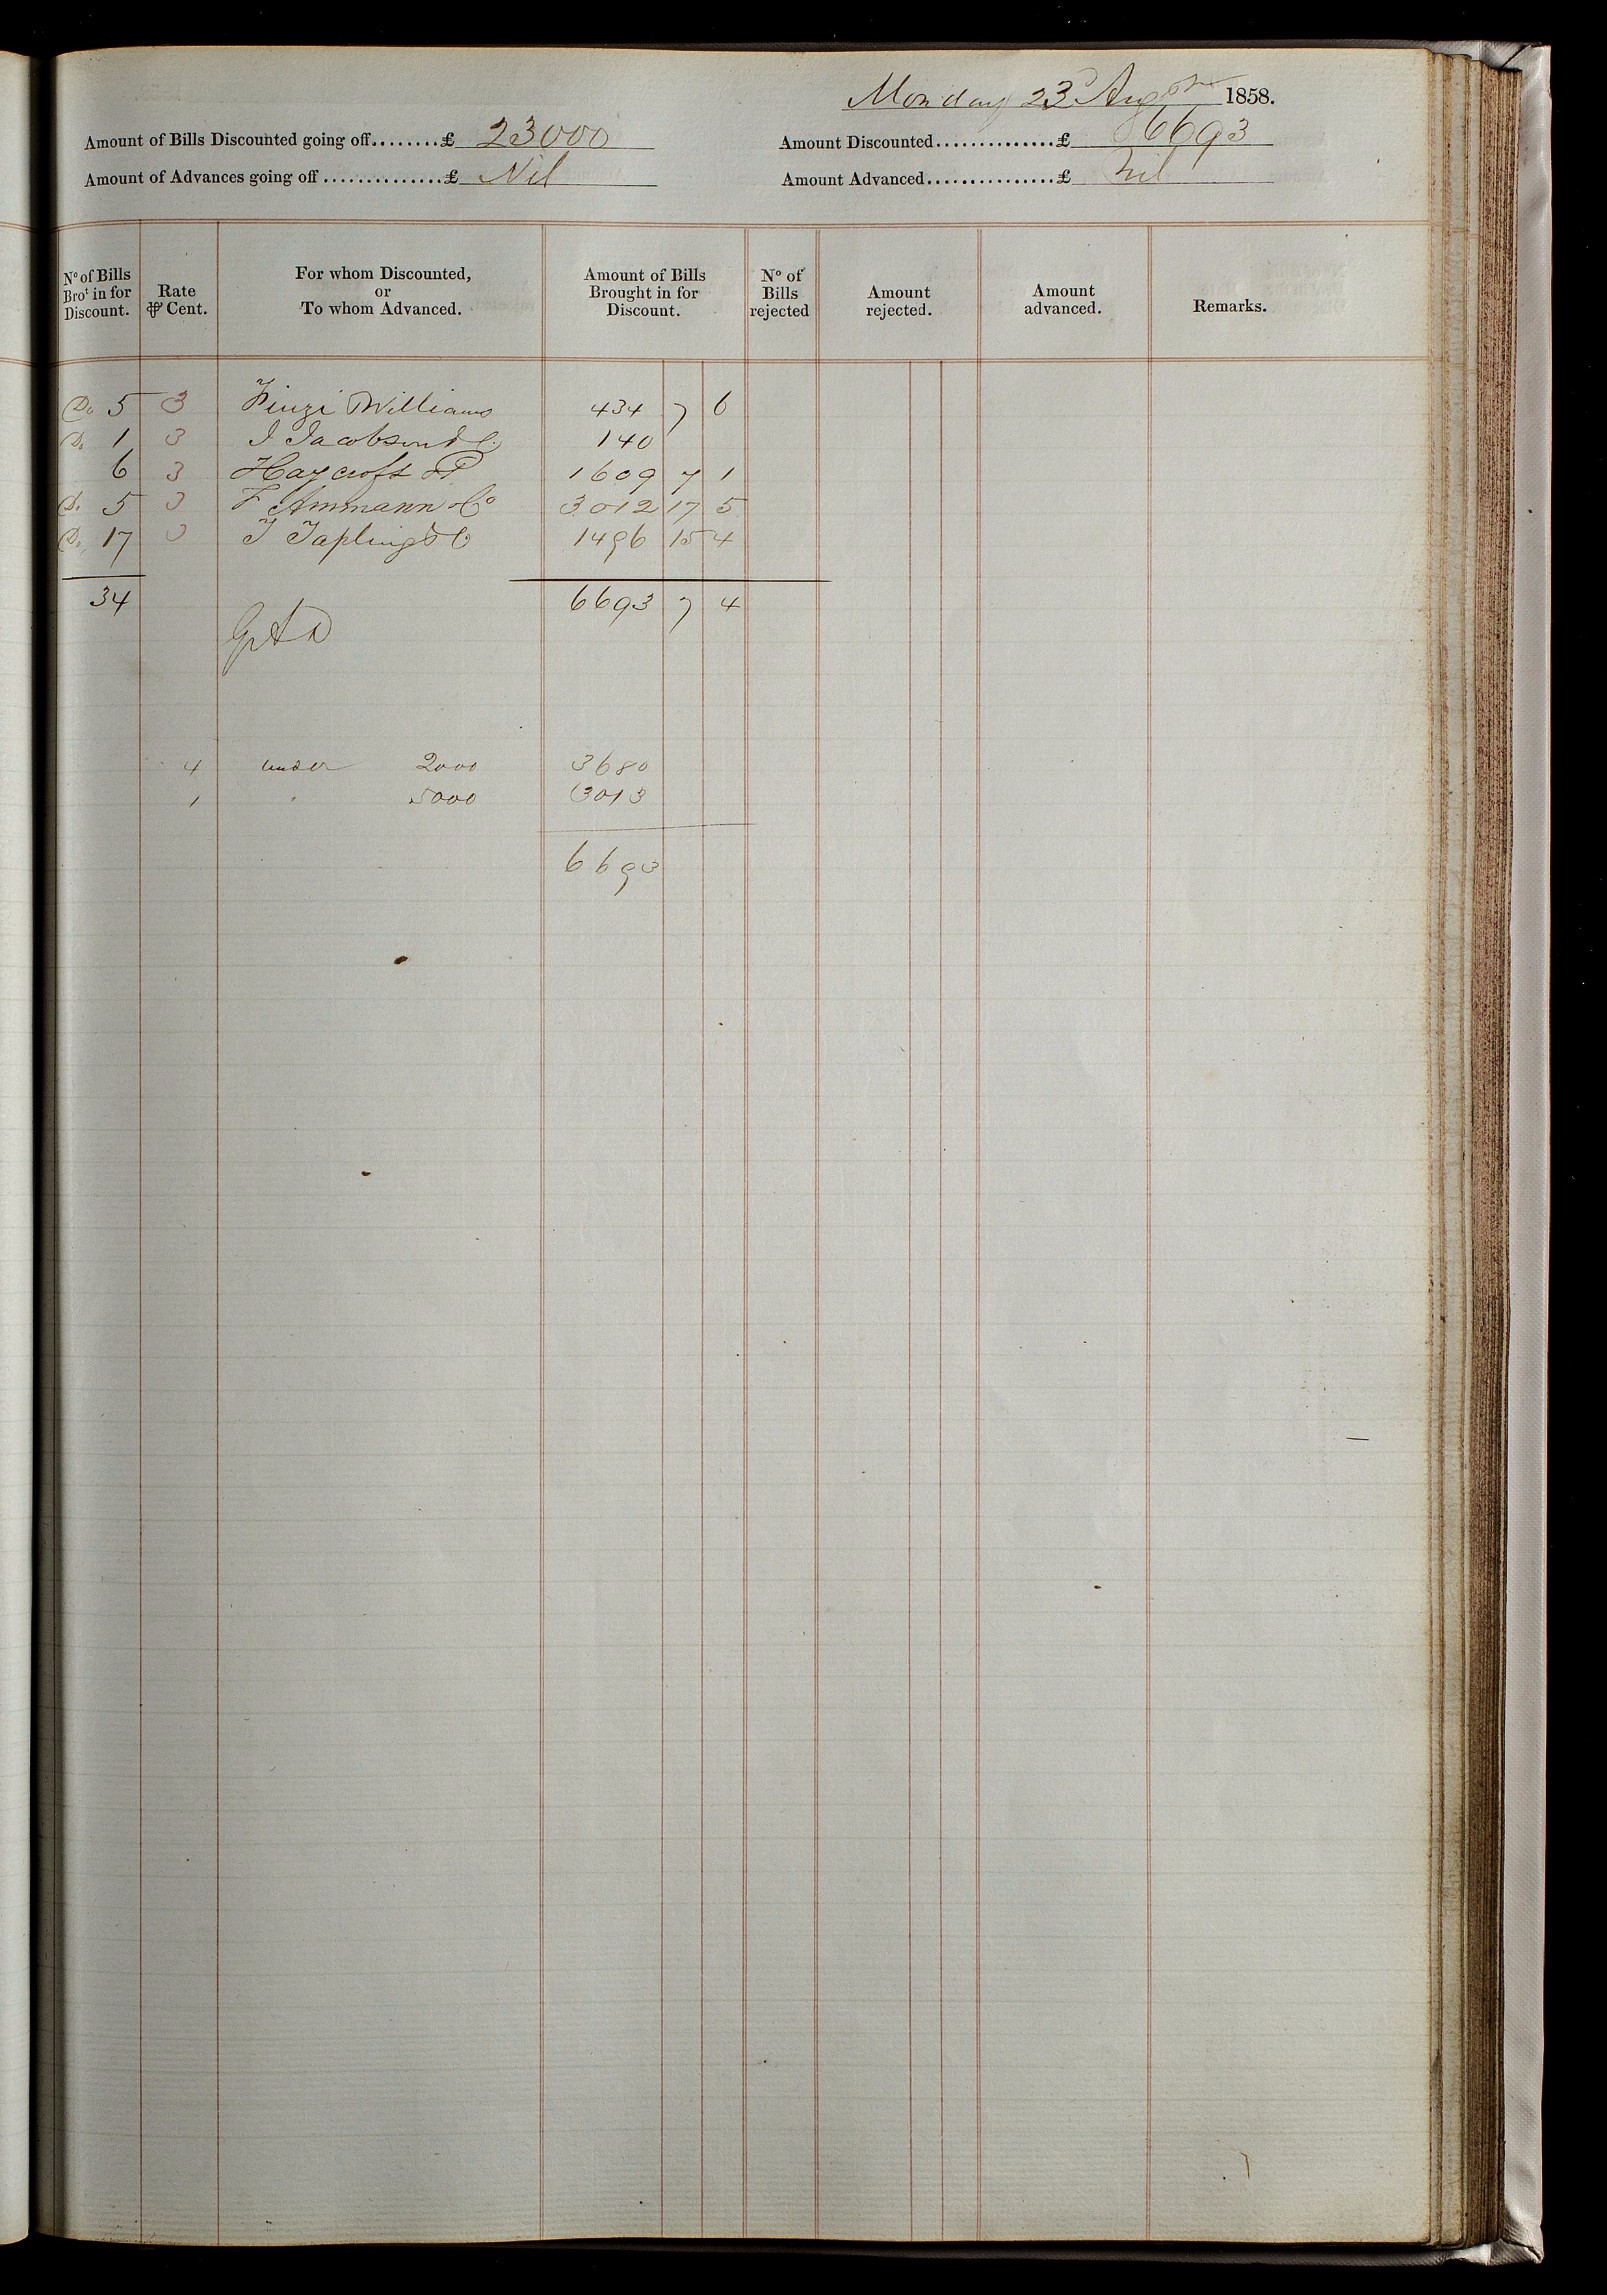 Monday 23d August 1858.
Amount of Bills Discounted going off........£ 23000 Amount Discounted..............£ 6693
Amount of Advances going off..............£ Nil Amount Advanced................£ Nil
No of Bills Brot in for Discount. Rate ⅌ Cent. For whom Discounted, or To whom Advanced. Amount of Bills Brought in for Discount. No of Bills rejected Amount rejected. Amount advanced. Remarks.
Do 5 3 Finzi Williams 434 7 6
Do 1 3 J Jacobson & Co 140
6 3 Haycroft & P 1609 7 1
Do 5 3 F Ammann & Co 3012 17 5
Do 17 3 T Tapling & Co 1496 15 4
34 6693 7 4
4 under 2000 3680
1 " 5000 3013
6693